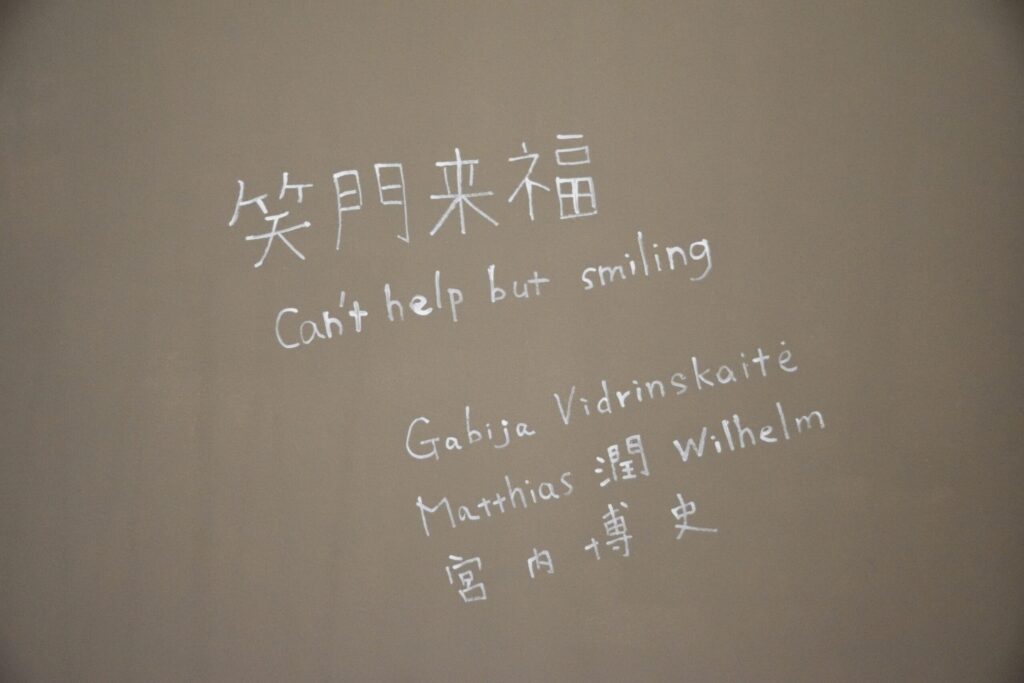 笑門来福
Can't help but smiling
Gabija Vidrinskaitė
Matthias 潤 Wilhelm
宮内博史